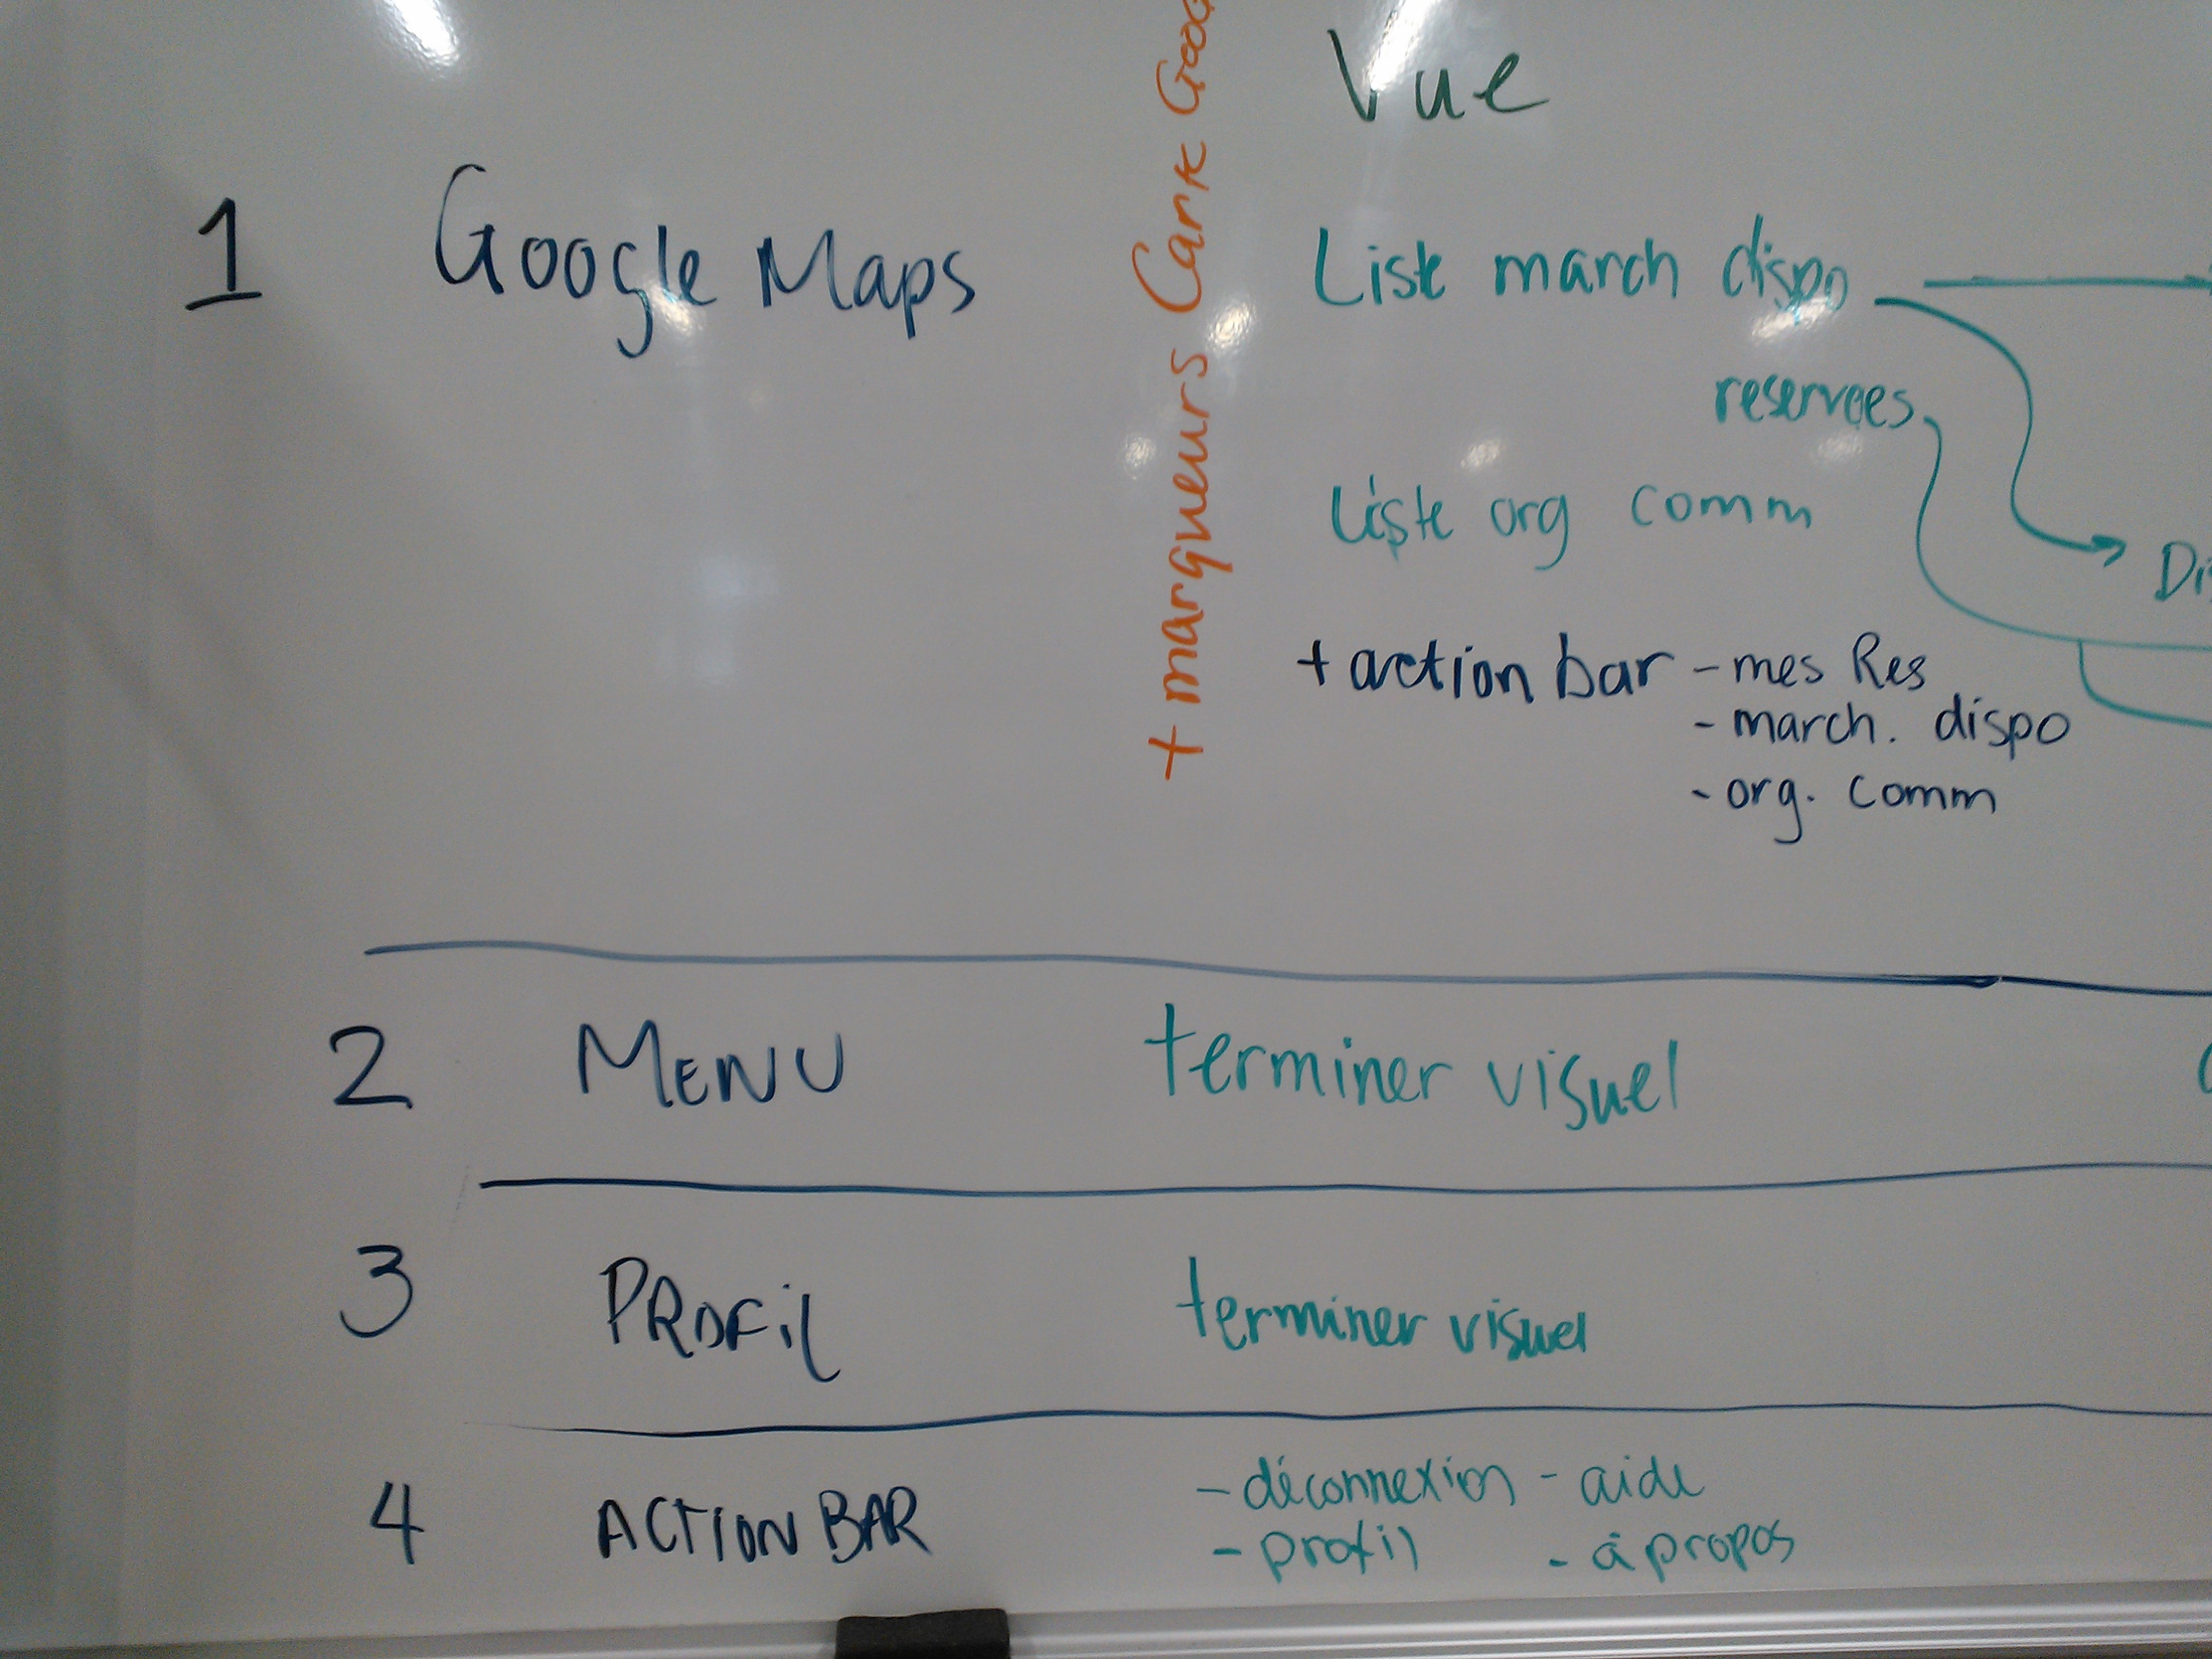 Vue
1 Google Maps
+ marqueurs Carte Goog
Liste march dispo
reservees
Liste org comm
Di
+ action bar - mes Res
- march. dispo
- org. comm
2 MENU terminer visuel
3 PROFil terminer visuel
4 ACTION BAR - déconnexion - aide
- profil - à propos